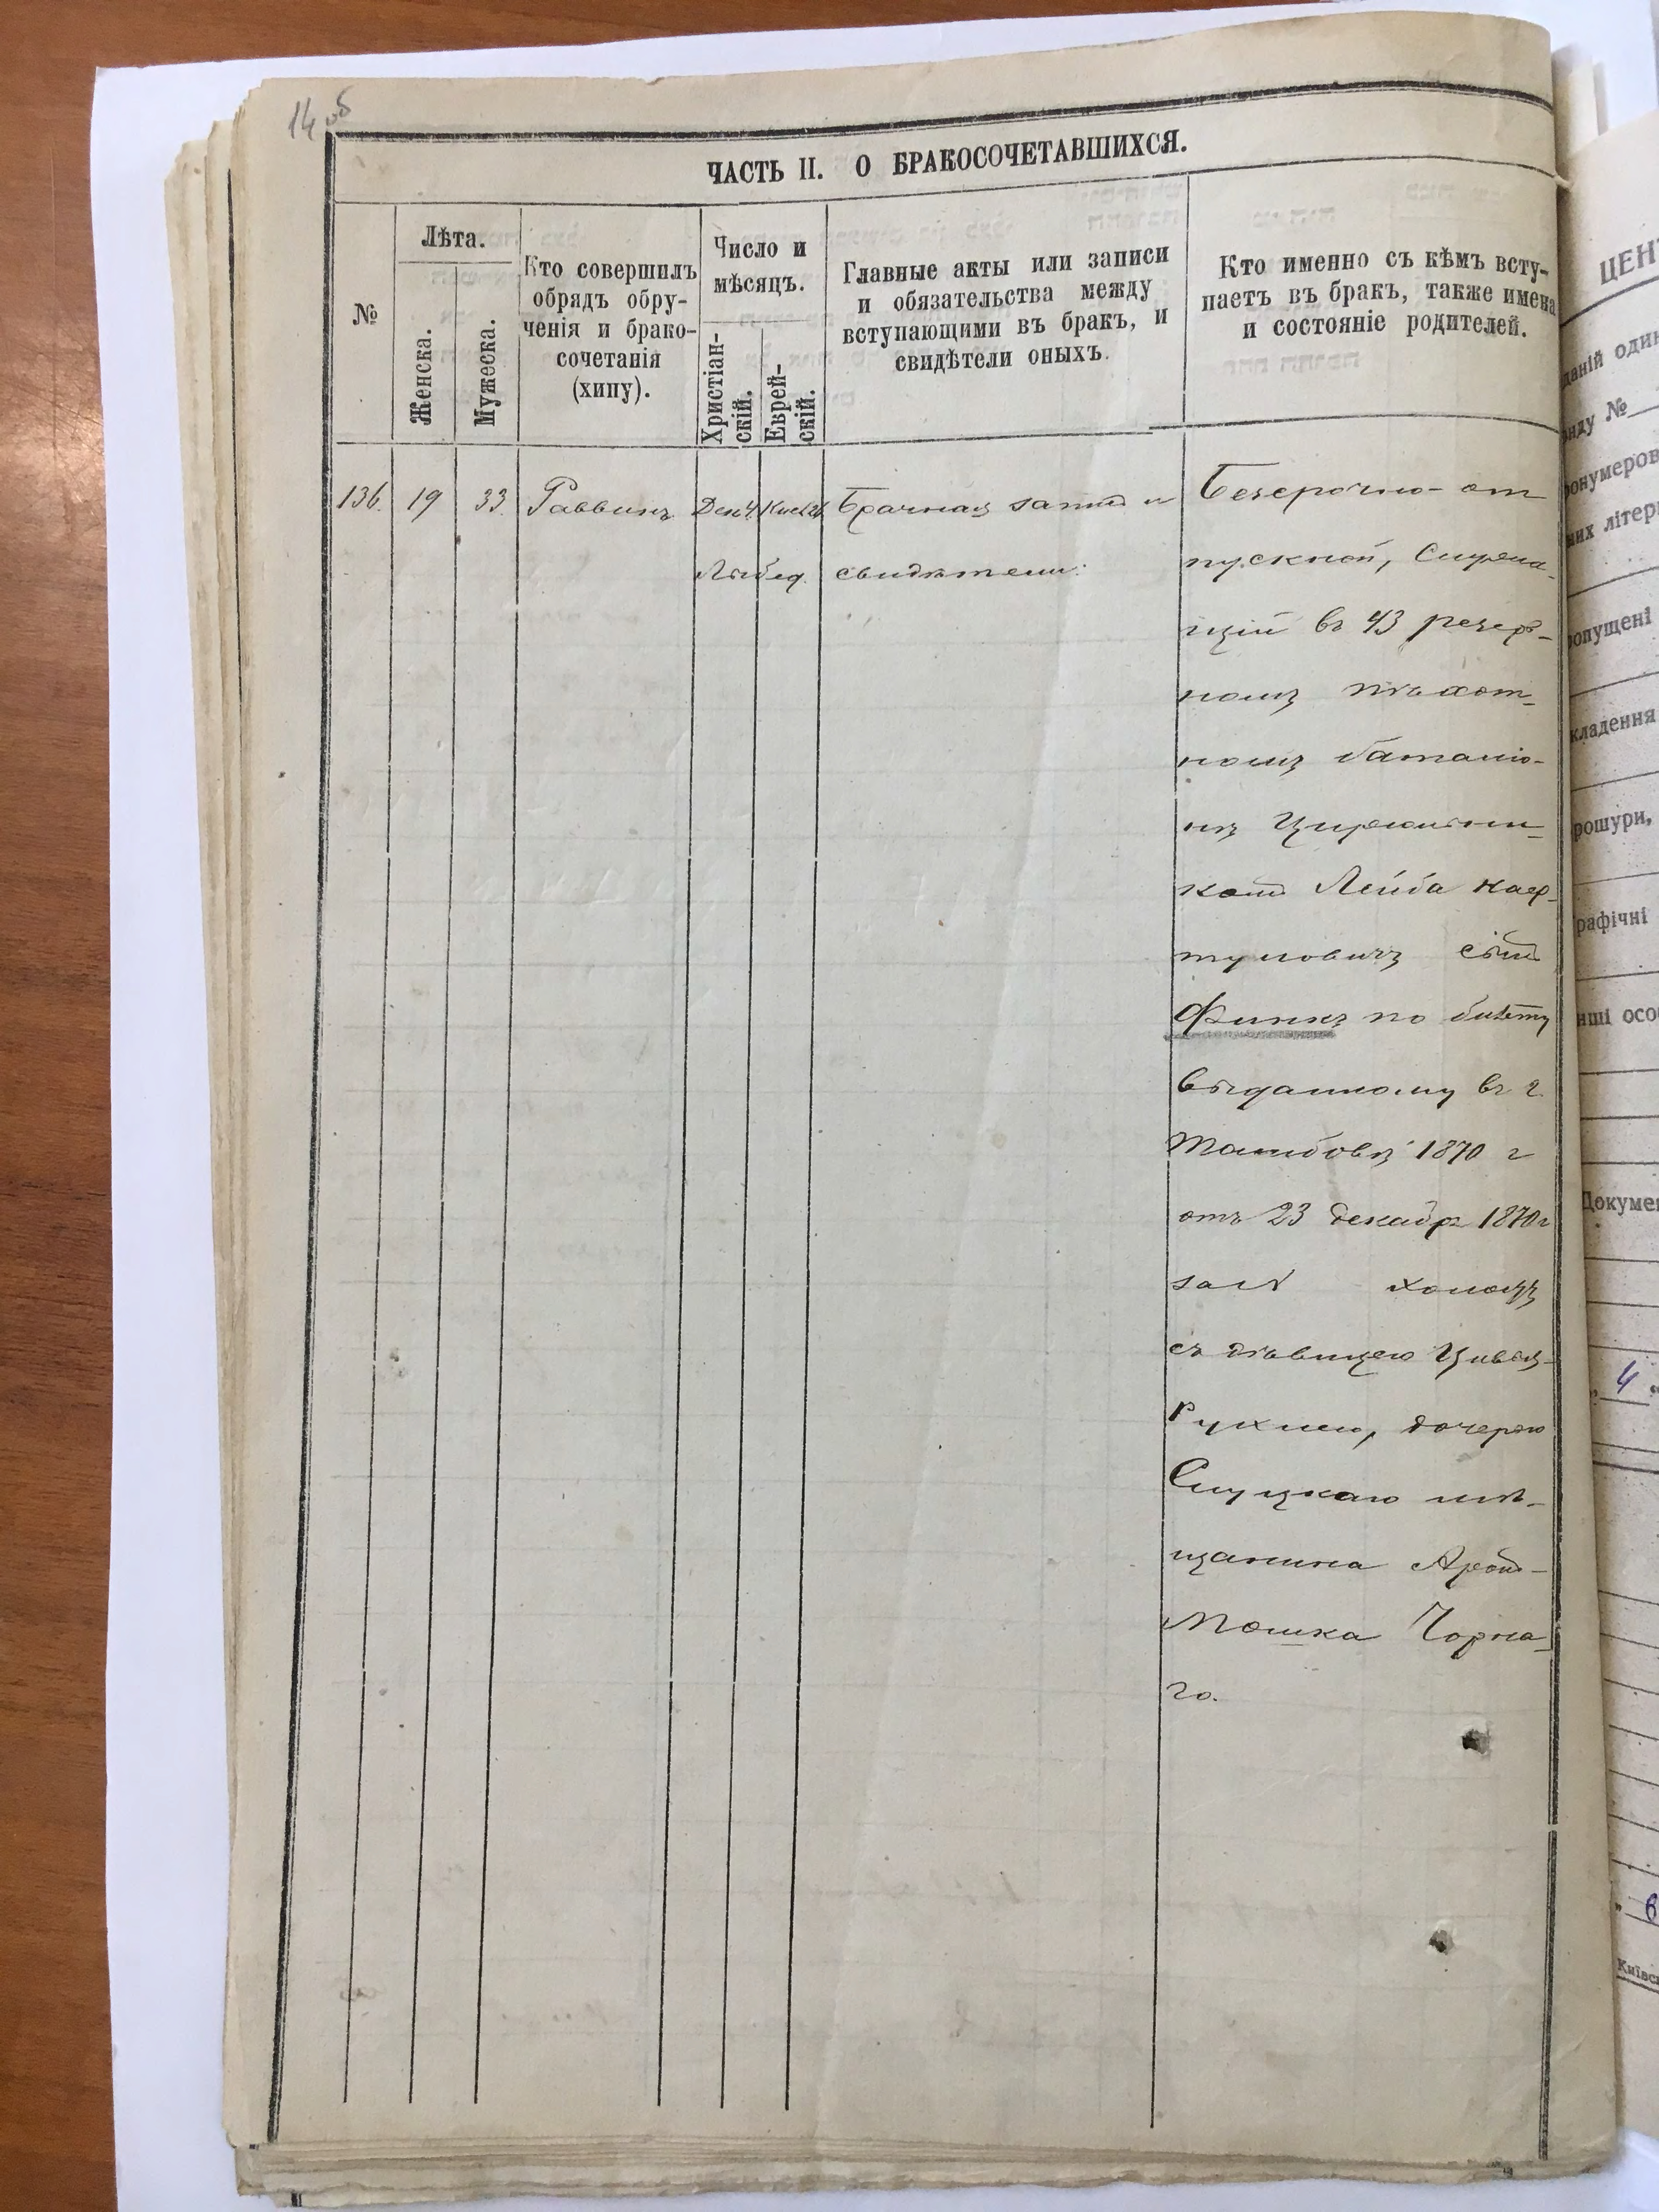 14 об
ЧАСТЬ II. О БРАКОСОЧЕТАВШИХСЯ.
№
Лѣта.
Женска.
Мужеска.
Кто совершилъ
обрядъ обру-
ченія и брако-
сочетанія
(хипу).
Число и
мѣсяцъ.
Христіан-
скій.
Еврей-
скій.
Главные акты или записи
и обязательства между
вступающими въ бракъ, и
свидѣтели оныхъ.
Кто именно съ кѣмъ всту-
паетъ въ бракъ, также имена
и состояніе родителей.
136. 19 33. Раввинъ Дек 4. Брачная запис и
свидѣтели:
Безсрочно-от
пускной,
въ 43 резерв-
номъ пѣхот-
номъ баталіо-
нѣ
Лейба
сынъ
Финкъ по билету
выданному въ г.
Тамбовѣ 1870 г
отъ 23 декабр 1870 г
холост
съ дѣвицею Цивья-
Рухлею, дочерью
Слуцкаго мѣ-
щанина Арон-
Мошка Чорна-
го.
ЦЕН
ропущені
кладення
рошури,
рафічні
нші осо
Докумен
4
Київс